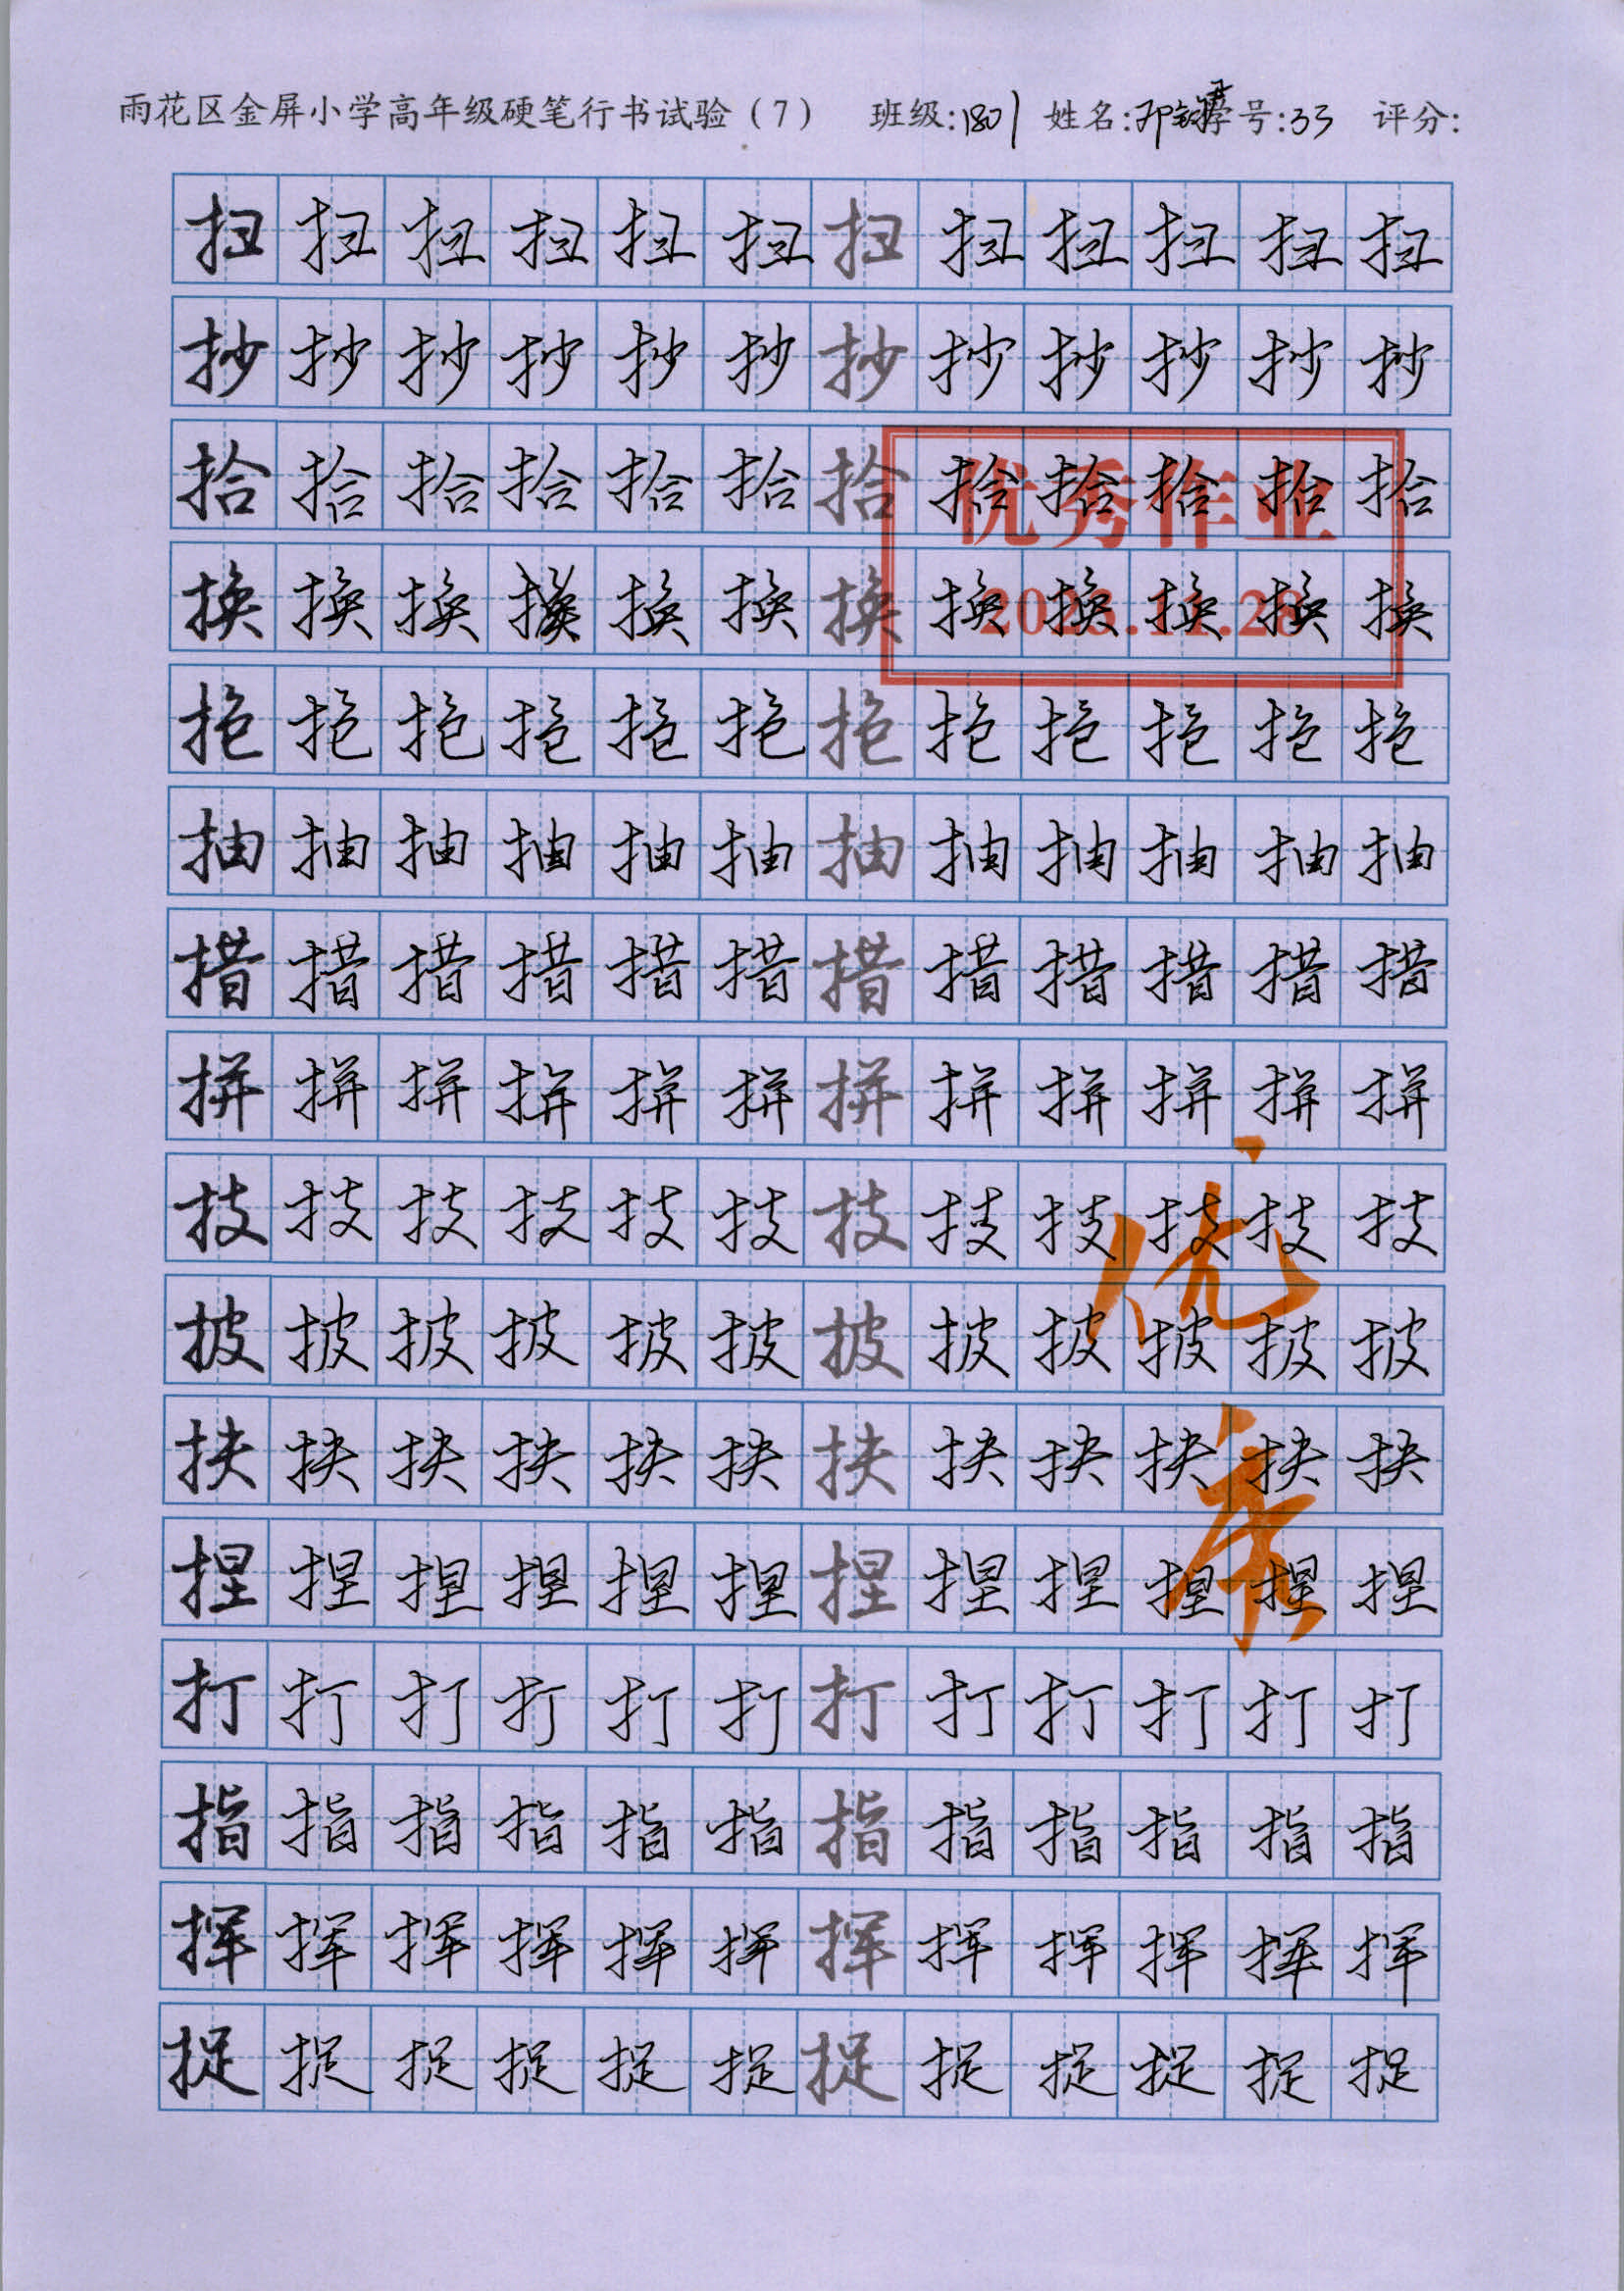 雨花区金屏小学高年级硬笔行书试验（7） 班级:1801 姓名: 学号:33 评分:
扫扫扫扫扫扫扫扫扫扫扫扫
抄抄抄抄抄抄抄抄抄抄抄抄
拾拾拾拾拾拾拾拾拾拾拾拾
优秀作业
换换换换换换换换换换换换
抱抱抱抱抱抱抱抱抱抱抱抱
抽抽抽抽抽抽抽抽抽抽抽抽
措措措措措措措措措措措措
拼拼拼拼拼拼拼拼拼拼拼拼
技技技技技技技技技技技技
优
披披披披披披披披披披披披
扶扶扶扶扶扶扶扶扶扶扶扶
捏捏捏捏捏捏捏捏捏捏捏捏
打打打打打打打打打打打打
指指指指指指指指指指指指
挥挥挥挥挥挥挥挥挥挥挥挥
捉捉捉捉捉捉捉捉捉捉捉捉